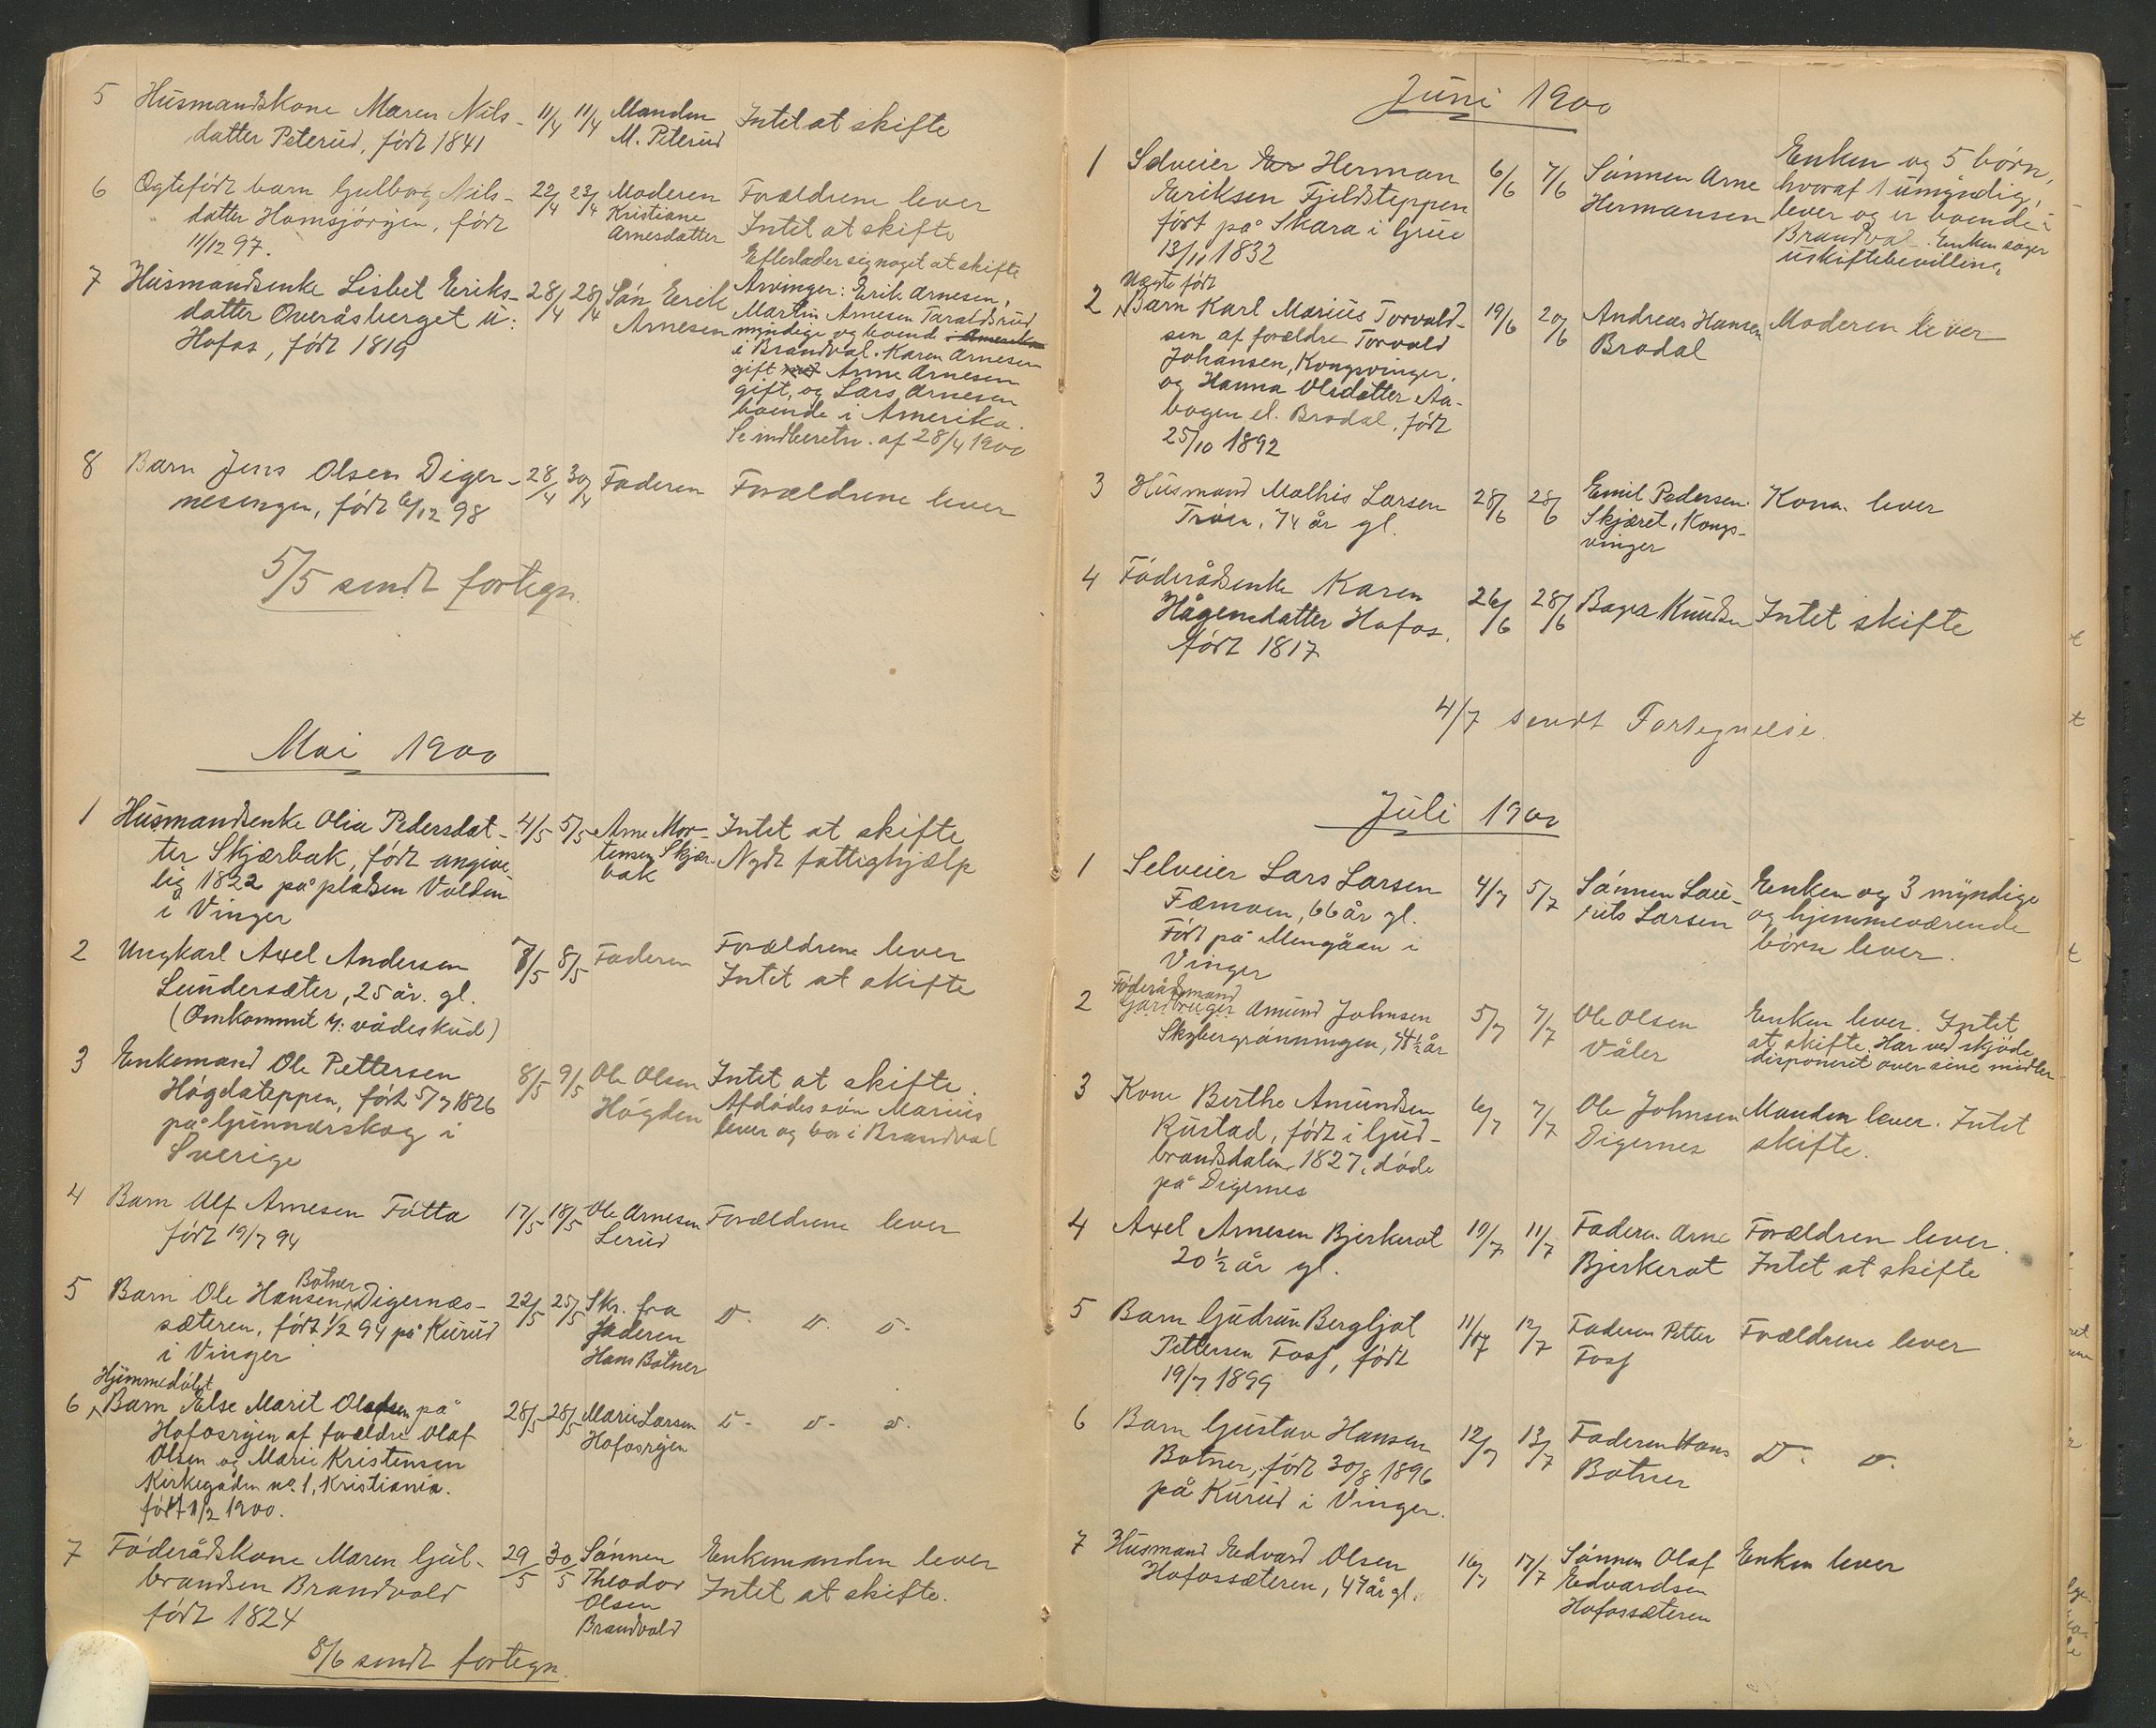 5 Husmandskone Maren Nils- 11/4 11/4 Manden Intet at skifte
datter Peterud, født 1841 M. Peterud
6 Ægtefødt barn Gulborg Nils- 22/4 23/4 Moderen Forældrene lever
datter Hamsjøryen, født Kristiane Intet at skifte
11/12 97. Arnesdatter
Efterlader sig noget at skifte
7 Husmandsenke Lisbet Eeriks- 28/4 28/4 Søn Eerik Arvinger: Erik Arnesen,
datter Overåsberget u: Arnesen Martin Arnesen Taraldsrud
Hofos, født 1819 myndige og boende i Amerika
i Brandval. Karen Arnesen
gift med Anne Arnesen
gift, og Lars Arnesen
boende i Amerika.
Se indberetn. af 28/4 1900
8 Barn Jens Olsen Diger- 28/4 30/4 Faderen Forældrene lever
nesengen, født 6/12 98
5/5 sendt fortegn.
Mai 1900
1 Husmandsenke Olia Pedersdat- 4/5 5/5 Arne Mor- Intet at skifte
ter Skjærbak, født angive- tensen Skjær- Nydt fattighjælp
lig 1822 på pladsen Volden bak
i Vinger
2 Ungkarl Axel Andersen 7/5 8/5 Faderen Forældrene lever
Lundersæter, 25 år. gl. Intet at skifte
(Omkommet v. vådeskud)
3 Enkemand Ole Pettersen 8/5 9/5 Ole Olsen Intet at skifte
Høgdateppen, født 5/7 1826 Høgden Afdødes søn Marius
på Gunnarskog i lever og bor i Brandval
Sverige
4 Barn Alf Arnesen Føtta 17/5 18/5 Ole Arnesen Forældrene lever
født 19/7 94 Lerud
5 Barn Ole Hansen Botner Digernæs- 22/5 25/5 Skr. fra D. D. D.
sæteren, født 1/2 94 på Kurud Faderen
i Vinger Hans Botner
Hjemmedøbt
6 Barn Else Marit Olafsen på 28/5 28/5 Marie Larsen D. D. D.
Hofosryen af forældre Olaf Hofosryen
Olsen og Marie Kristensen
Kirkegaden no. 1, Kristiania.
født 11/2 1900.
7 Føderådskone Maren Gul- 29/5 30/5 Sønnen Enkemanden lever
brandsen Brandvold Theodor Intet at skifte.
født 1824 Olsen
Brandvold
8/6 sendt fortegn.
Juni 1900
1 Selveier Eer Herman 6/6 7/6 Sønnen Arne Enken og 5 børn,
Eeriksen Fjeldsteppen Hermansen hvoraf 1 umyndig,
født på Skara i Grue lever og er boende i
13/11 1832 Brandval. Enken søger
uskiftebevilling.
Uægte født
2 Barn Karl Marius Torvald- 19/6 20/6 Andreas Hansen Moderen lever
sen af forældre Torvald Brodal
Johansen, Kongsvinger,
og Hanna Olsdatter Aa-
bogen el. Brodal, født
25/10 1892
3 Husmand Mathis Larsen 28/6 28/6 Emil Pedersen Kona lever
Trøen, 74 år gl. Skjæret, Kongs-
vinger
4 Føderådsenke Karen 26/6 28/6 Bager Knudsen Intet skifte
Hågensdatter Hofos,
født 1817
4/7 sendt Fortegnelse.
Juli 1900
1 Selveier Lars Larsen 4/7 5/7 Sønnen Lau- Enken og 3 myndige
Fæmoen, 66 år gl. rits Larsen og hjemmeværende
Født på Mengåen i børn lever.
Vinger
Føderådsmand
2 Gårdbruger Amund Johnsen 5/7 7/7 Ole Olsen Enken lever. Intet
Skybergrønningen, 74 1/2 år Våler at skifte. Har ved skjøde
disponeret over sine midler
3 Kone Berthe Amundsen 6/7 7/7 Ole Johnsen Manden lever. Intet
Rustad, født i Gud- Digernes skifte.
brandsdalen 1827, døde
på Digernes
4 Axel Arnesen Bjerkerot 10/7 11/7 Faderen Arne Forældren lever.
20 1/2 år gl. Bjerkerot Intet at skifte
5 Barn Gudrun Bergljot 11/7 12/7 Faderen Petter Forældrene lever
Pettersen Fosf, født Fosf
19/7 1899
6 Barn Gustav Hansen 12/7 13/7 Faderen Hans D. D.
Botner, født 30/8 1896 Botner
på Kurud i Vinger.
7 Husmand Eedvard Olsen 16/7 17/7 Sønnen Olaf Enken lever
Hofossæteren, 47 år gl. Edvardsen
Hofossæteren